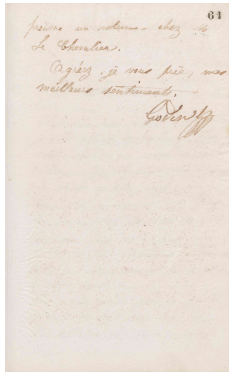 61
prendre un volume chez M
Le Chevalier.
Agréez, je vous prie, mes
meilleurs sentiments.
Godin